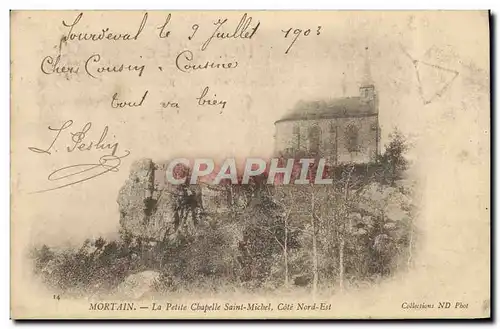 Jourdeval le 9 Juillet 1903
Chers Cousin, Cousine
tout va bien
CPAPHIL
14
MORTAIN. — La Petite Chapelle Saint-Michel, Côté Nord-Est
Collections ND Phot